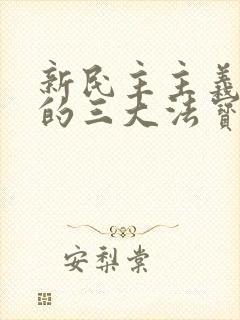 新民主主義
的三大法寶
安梨棠